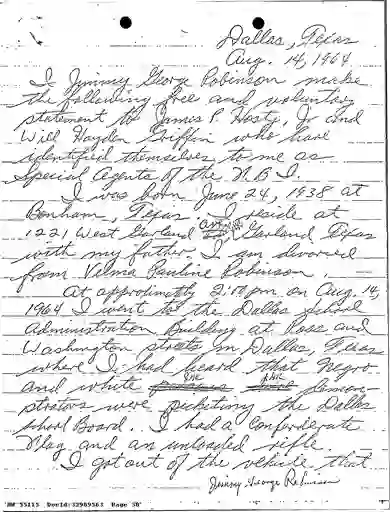 Dallas, Texas
Aug. 14, 1964
I Jimmy George Robinson make
the following free and voluntary
statement to James P. Hosty, Jr and
Will Hayden Griffin who have
identified themselves to me as
Special Agents of the F.B.I.
I was born June 24, 1938 at
Bonham, Texas. I reside at
1221 West Garland Garland Texas
with my father. I am divorced
from Velma Pauline Robinson.
At approximatly 2:00 pm on Aug. 14,
1964 I went to the Dallas School
Administration Building at Ross and
Washington streets in Dallas, Texas
where I had heard that Negro
and white demon-
strators were picketing the Dallas
School Board. I had a Confederate
Flag and an unloaded rifle.
I got out of the vehicle that
Jimmy George Robinson
NW 55115 DocId:32989561 Page 50